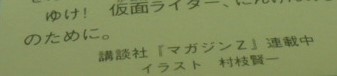 ゆけ! 仮面ライダー、にんげんの
のために。
講談社『マガジンZ』連載中
イラスト 村枝賢一